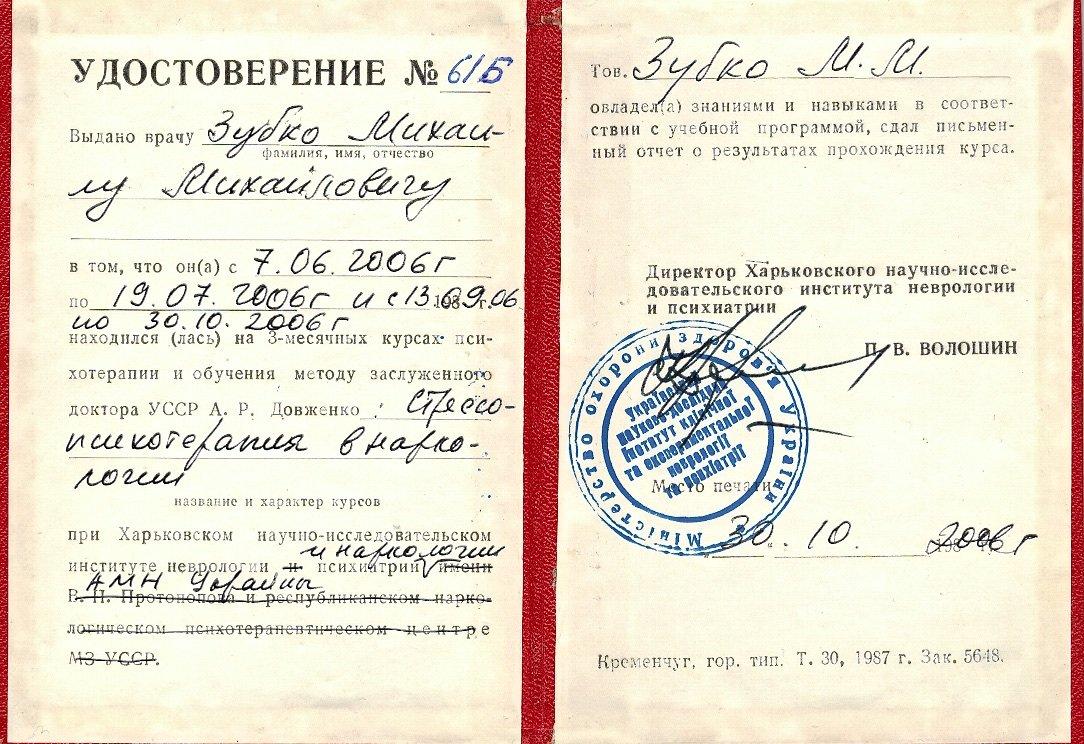 УДОСТОВЕРЕНИЕ № 61Б
Выдано врачу Зубко Михаи-
фамилия, имя, отчество
лу Михайловичу
в том, что он(а) с 7.06.2006г
по 19.07.2006г и с 13.09.06
по 30.10.2006г
находился (лась) на 3-месячных курсах пси-
хотерапии и обучения методу заслуженного
доктора УССР А. Р. Довженко : Стрессо-
психотерапия в нарко-
логии
название и характер курсов
при Харьковском научно-исследовательском
и наркологии
институте неврологии и психиатрии имени
АМН Украины
В. П. Протопопова и республиканском нарко-
логическом психотерапевтическом центре
МЗ УССР.
Тов. Зубко М.М.
овладел(а) знаниями и навыками в соответ-
ствии с учебной программой, сдал письмен-
ный отчет о результатах прохождения курса.
Директор Харьковского научно-иссле-
довательского института неврологии
и психиатрии
П. В. ВОЛОШИН
Міністерство охорони здоров'я України
науково-дослідний
інститут клінічної
та експериментальної
неврології
та психіатрії
Место печати
30. 10. 2006г
Кременчуг, гор. тип. Т. 30, 1987 г. Зак. 5648.